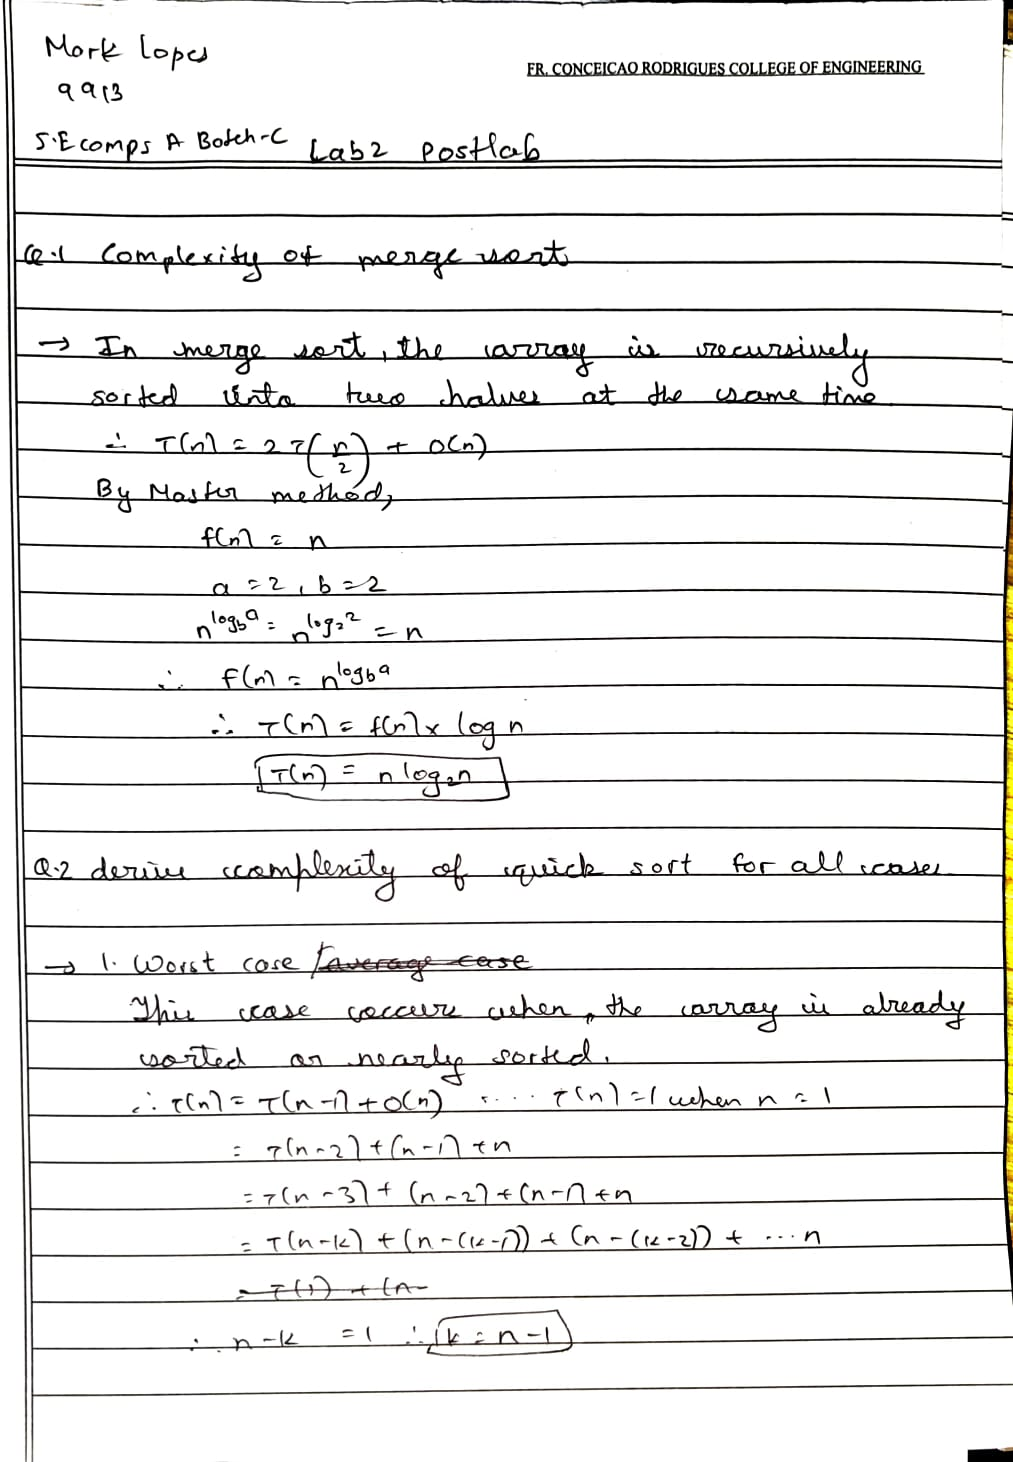 Mark Lopes
FR. CONCEICAO RODRIGUES COLLEGE OF ENGINEERING
9913
S.E comps A Batch-C Lab 2 Postlab
Q.1 Complexity of merge sort
→ In merge sort, the array is recursively
sorted into two halves at the same time
∴ T(n) = 2T(n/2) + O(n)
By Master method,
f(n) = n
a = 2, b = 2
n^log_b a = n^log_2 2 = n
∴ f(n) = n^log_b a
∴ T(n) = f(n) x log n
T(n) = n log₂n
Q.2 derive complexity of quick sort for all cases
→ 1. Worst case / average case
This case occurs when, the array is already
sorted or nearly sorted.
∴ T(n) = T(n-1) + O(n) .... T(n) = 1 when n = 1
= T(n-2) + (n-1) + n
= T(n-3) + (n-2) + (n-1) + n
= T(n-k) + (n-(k-1)) + (n-(k-2)) + ... n
= T(1) + (n-
∴ n-k = 1 ∴ k = n-1